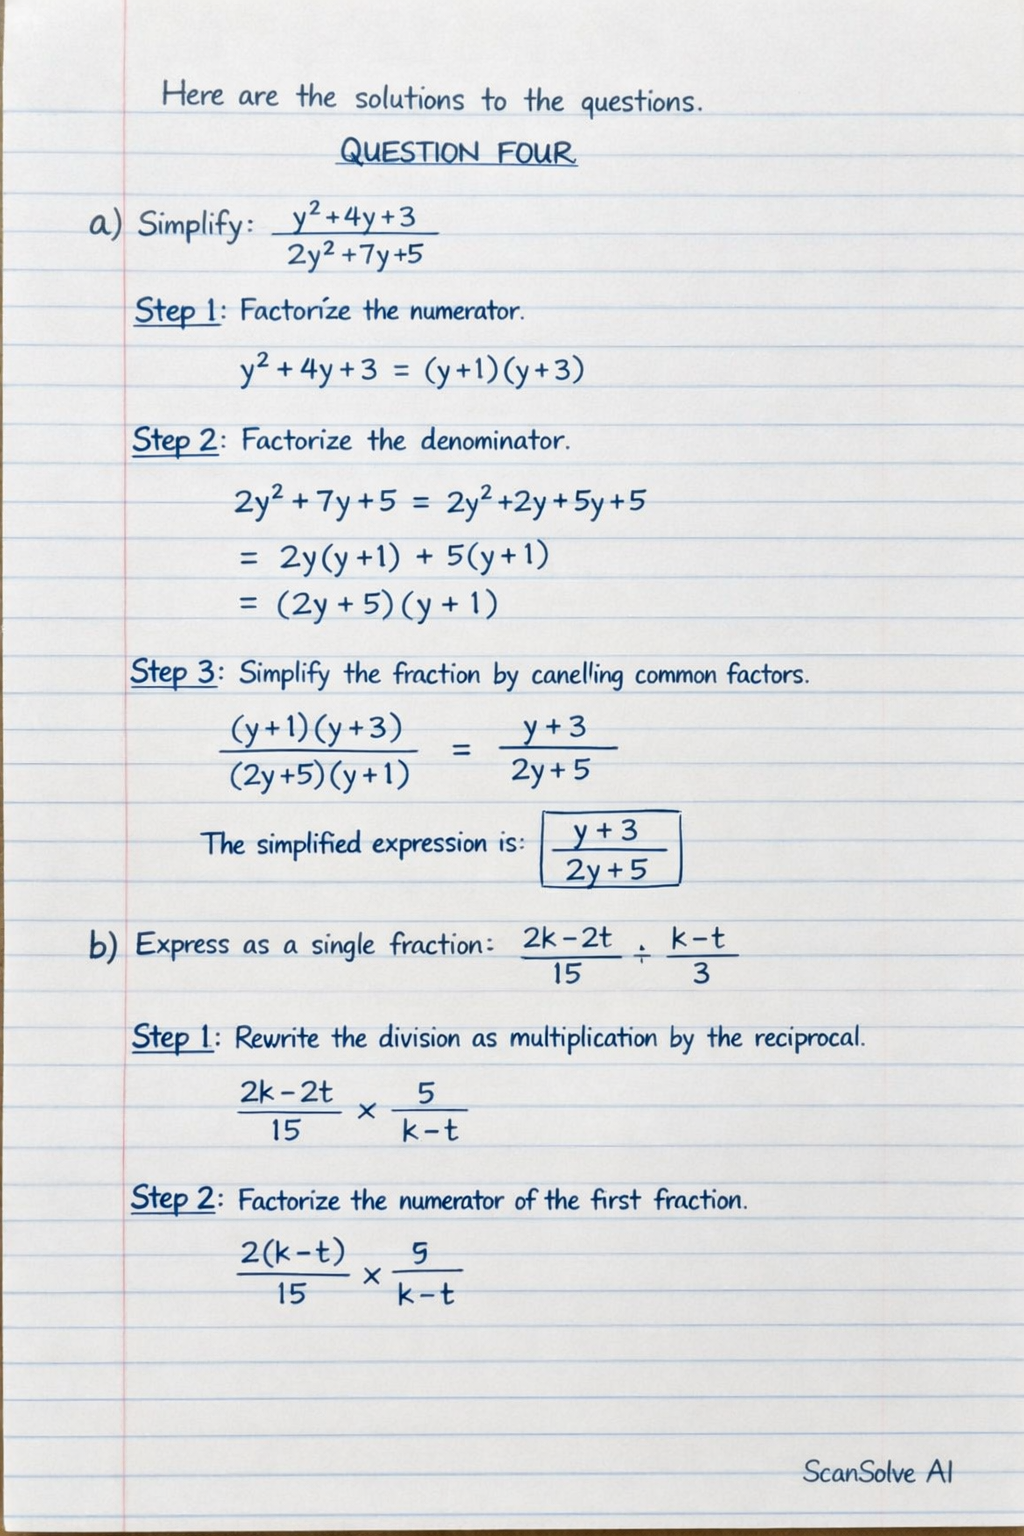 Here are the solutions to the questions.
QUESTION FOUR
a) Simplify: (y²+4y+3)/(2y²+7y+5)
Step 1: Factorize the numerator.
y²+4y+3 = (y+1)(y+3)
Step 2: Factorize the denominator.
2y²+7y+5 = 2y²+2y+5y+5
= 2y(y+1) + 5(y+1)
= (2y+5)(y+1)
Step 3: Simplify the fraction by canelling common factors.
(y+1)(y+3)/(2y+5)(y+1) = (y+3)/(2y+5)
The simplified expression is: (y+3)/(2y+5)
b) Express as a single fraction: (2k-2t)/15 ÷ (k-t)/3
Step 1: Rewrite the division as multiplication by the reciprocal.
(2k-2t)/15 × 5/(k-t)
Step 2: Factorize the numerator of the first fraction.
2(k-t)/15 × 5/(k-t)
ScanSolve AI